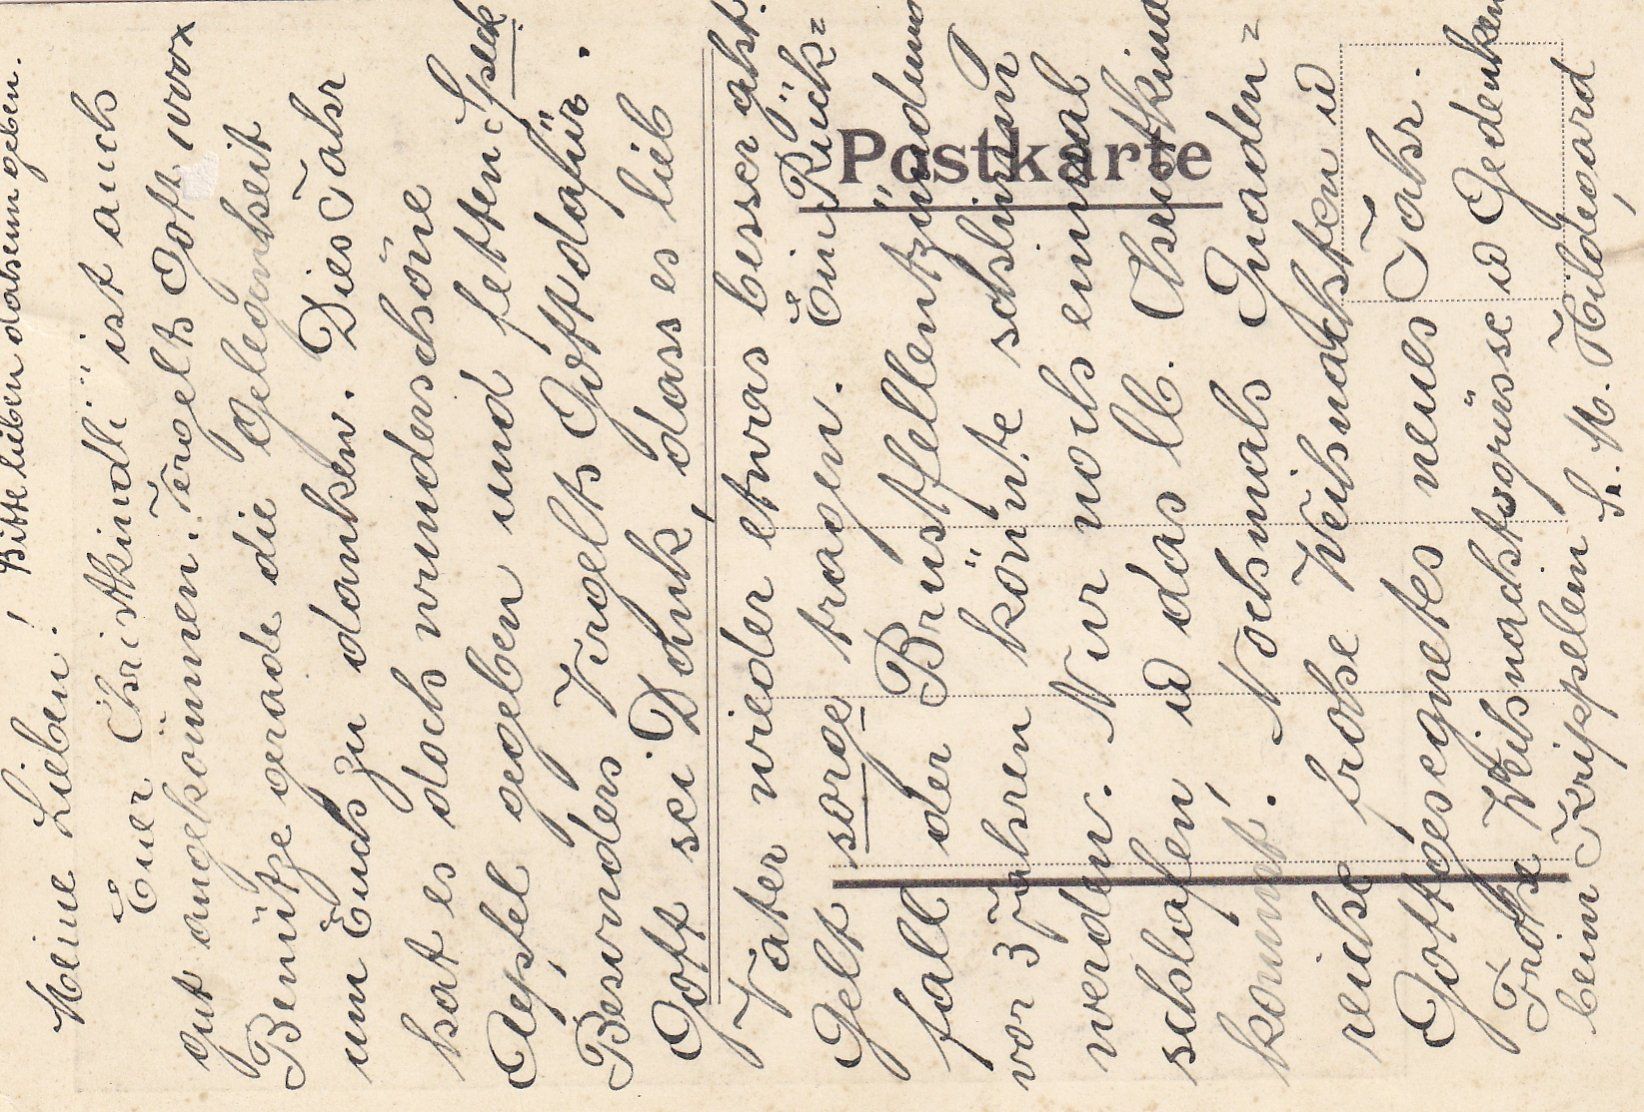 Bitte lieben dahsem geben.
Meine Lieben!
Euer Christkindli ist auch
gut angekommen. Vergelts Gott
Benütze gerade die Gelegenheit
um Euch zu danken. Dies Jahr
hat es doch wunderschöne
Aepfel gegeben und fetten Speck
Besonders Vrgelts Gott dafür.
Gott sei Dank, dass es lieb
Vater wieder etwas besser geht.
Gelt sorge tragen. Ein Rück=
fall der Brustfellentzündung
vor 3 Jahren könnte schlimm
werden. Nur noch einmal
schlafen, u das lb. Christkind
kommt. Nochmals Gnaden=
reiche frohe Weihnachten u
Gottgesegnetes neues Jahr.
Frohe Weihnachtsgrüsse u Gedenken
beim Kripplein Sr. M. Hildegard
Postkarte